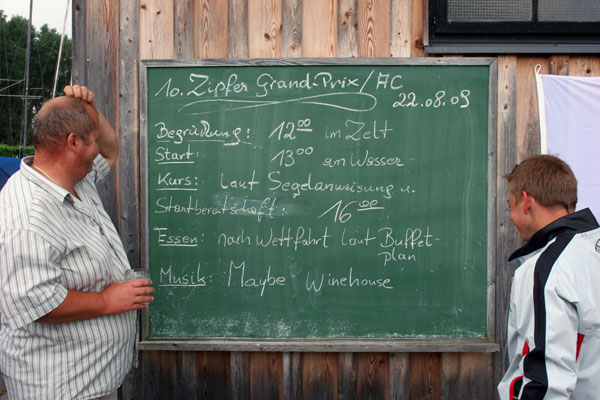 10. Zipfer Grand-Prix/AC
22.08.09
Begrüßung: 12⁰⁰ im Zelt
Start: 13⁰⁰ am Wasser
Kurs: Laut Segelanweisung u.
Startbereitschaft: 16⁰⁰
Essen: nach Wettfahrt laut Buffet-
plan
Musik: Maybe Winehouse